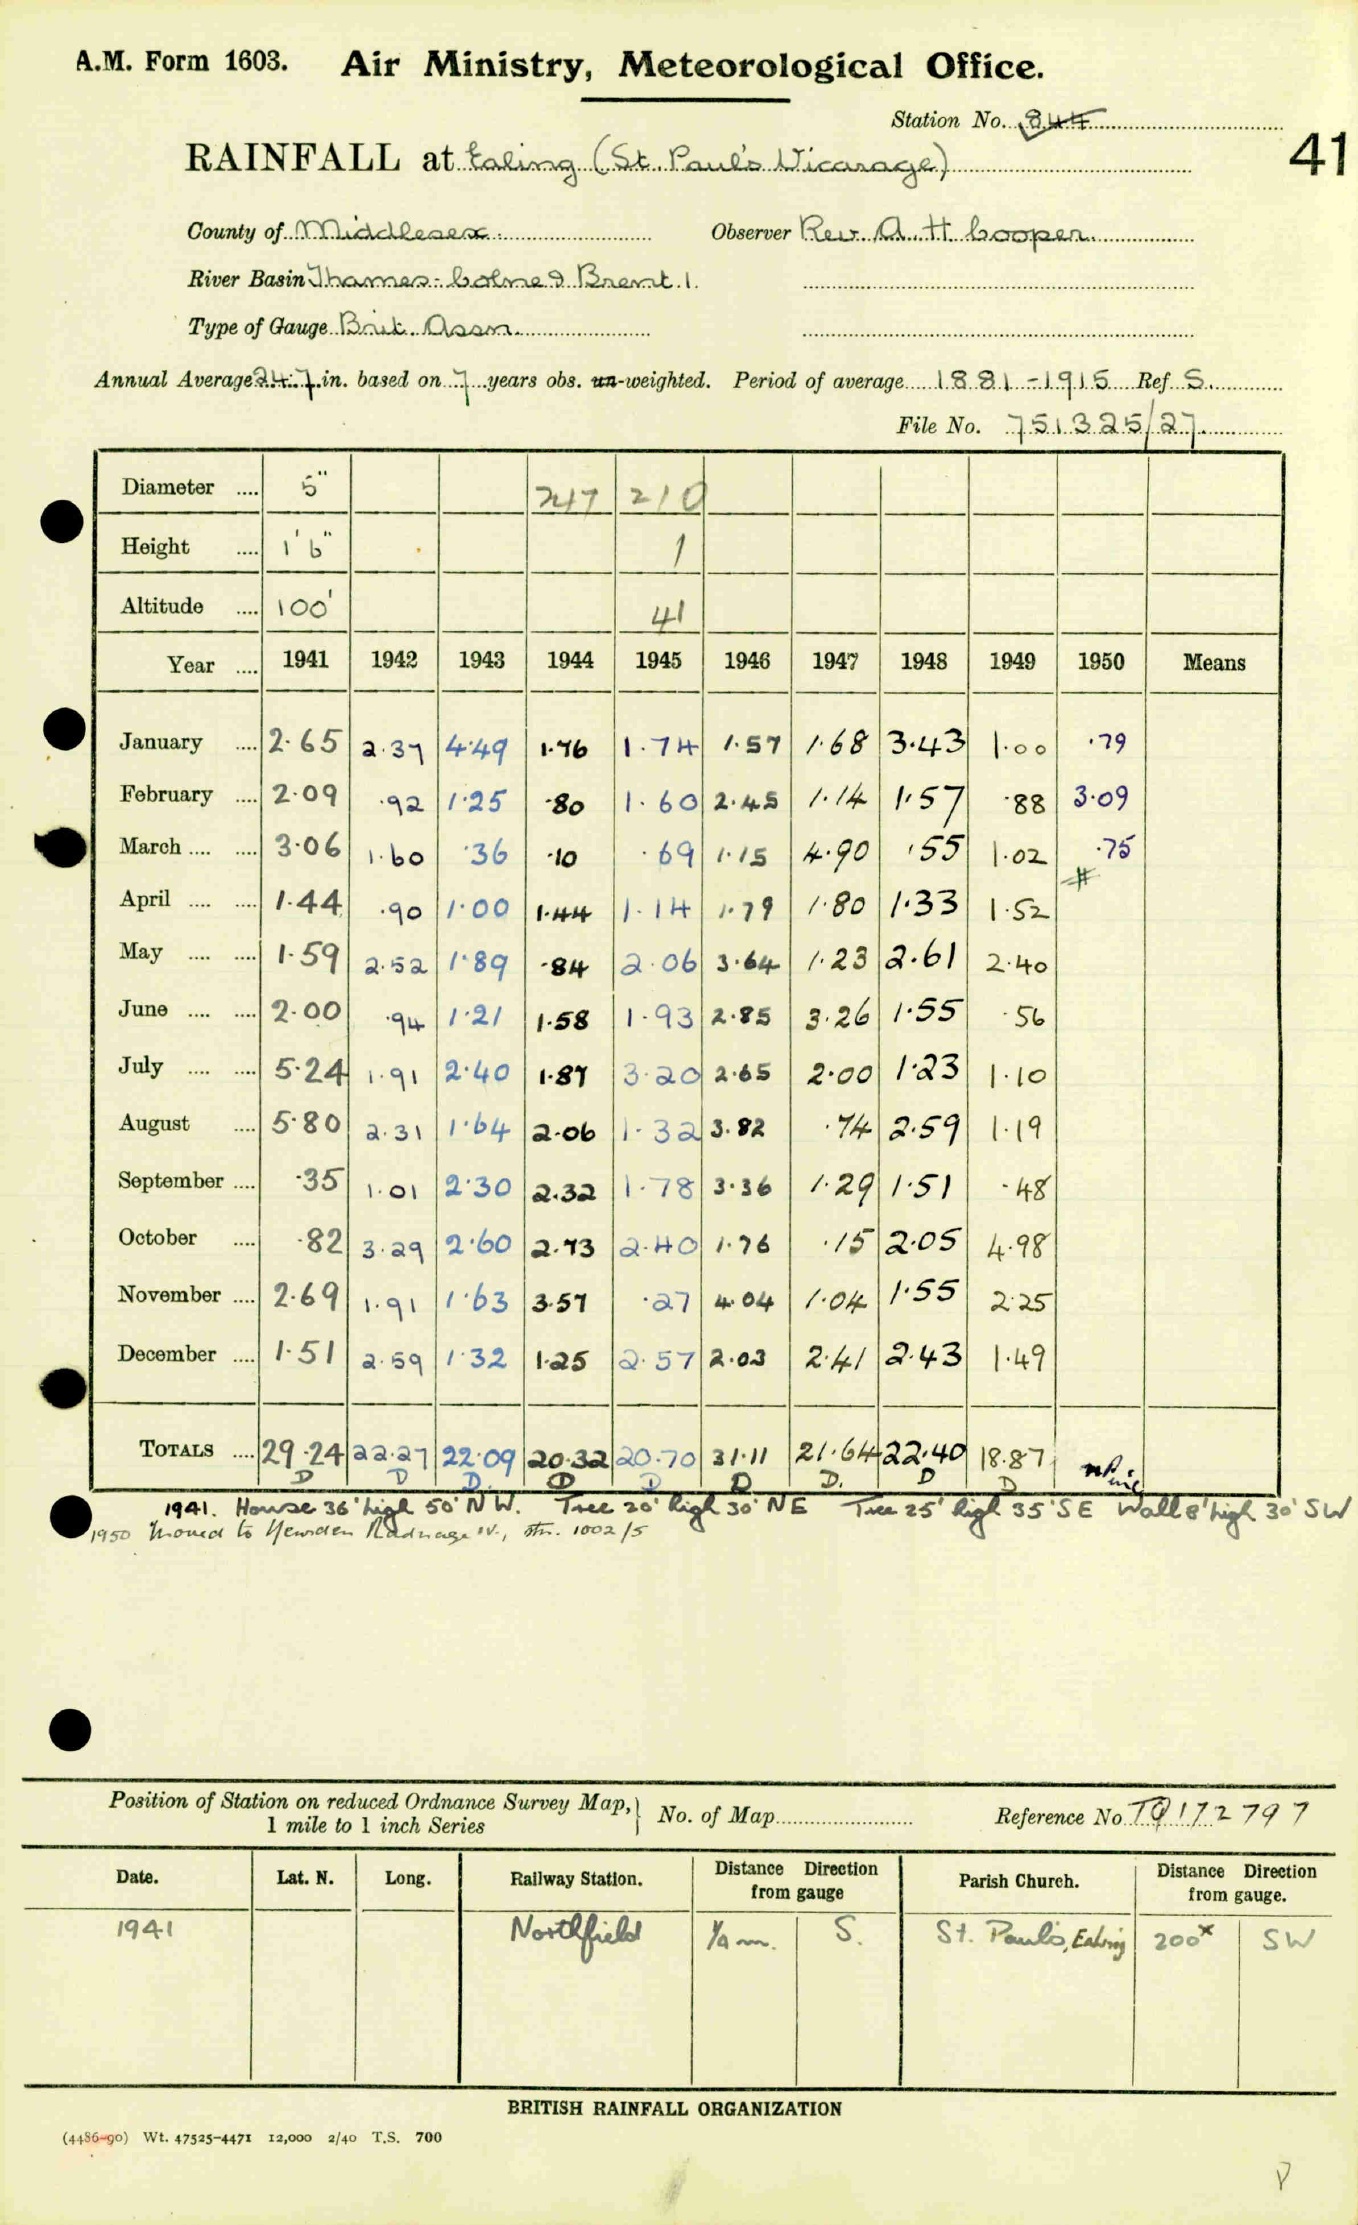 A.M. Form 1603. Air Ministry, Meteorological Office.
Station No. 844
41
RAINFALL at Ealing (St. Paul's Vicarage)
County of Middlesex. Observer Rev. A. H. Cooper.
River Basin Thames:- Colne & Brent. 1.
Type of Gauge Brit. Assn.
Annual Average 24.7 in. based on 7 years obs. un-weighted. Period of average 1881-1915 Ref. S.
File No. 751325/27
Diameter .... 5" 247 210
Height .... 1'6" 1
Altitude .... 100' 41
Year .... 1941 1942 1943 1944 1945 1946 1947 1948 1949 1950 Means
January .... 2.65 2.37 4.49 1.76 1.74 1.57 1.68 3.43 1.00 .79
February .... 2.09 .92 1.25 .80 1.60 2.45 1.14 1.57 .88 3.09
March .... .... 3.06 1.60 .36 .10 .69 1.15 4.90 .55 1.02 .75
April .... .... 1.44 .90 1.00 1.44 1.14 1.79 1.80 1.33 1.52
May .... .... 1.59 2.52 1.89 .84 2.06 3.64 1.23 2.61 2.40
June .... .... 2.00 .94 1.21 1.58 1.93 2.85 3.26 1.55 .56
July .... .... 5.24 1.91 2.40 1.87 3.20 2.65 2.00 1.23 1.10
August .... 5.80 2.31 1.64 2.06 1.32 3.82 .74 2.59 1.19
September .... .35 1.01 2.30 2.32 1.78 3.36 1.29 1.51 .48
October .... .82 3.29 2.60 2.73 2.40 1.76 .15 2.05 4.98
November .... 2.69 1.91 1.63 3.57 .27 4.04 1.04 1.55 2.25
December .... 1.51 2.59 1.32 1.25 2.57 2.03 2.41 2.43 1.49
TOTALS .... 29.24 22.27 22.09 20.32 20.70 31.11 21.64 22.40 18.87
D D D. D D D D. D D
1941. House 36' high 50' NW. Tree 20' high 30' NE Tree 25' high 35' SE Wall 8' high 30' SW
1950 Moved to Radnage Stn. 1002/5
Position of Station on reduced Ordnance Survey Map, 1 mile to 1 inch Series
No. of Map
Reference No. TQ 172797
Date. Lat. N. Long. Railway Station. Distance Direction from gauge Parish Church. Distance Direction from gauge.
1941 Northfield S. St. Paul's, Ealing 200x SW
BRITISH RAINFALL ORGANIZATION
(4486-90) Wt. 47525-4471 12,000 2/40 T.S. 700